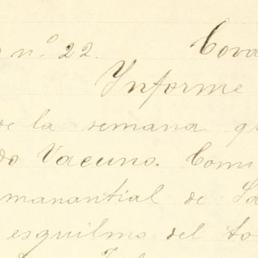 nº 22. Cova
Informe
de la semana qu
do Vacuno. Comi
manantial de La
esquilmo del to